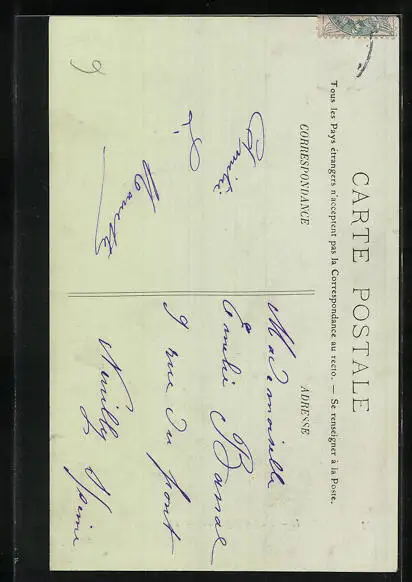 CARTE POSTALE
Tous les Pays étrangers n'acceptent pas la Correspondance au recto. — Se renseigner à la Poste.
CORRESPONDANCE
ADRESSE
Amitié
Mademoiselle
Emilie
9 rue du pont
Neuilly s/Seine